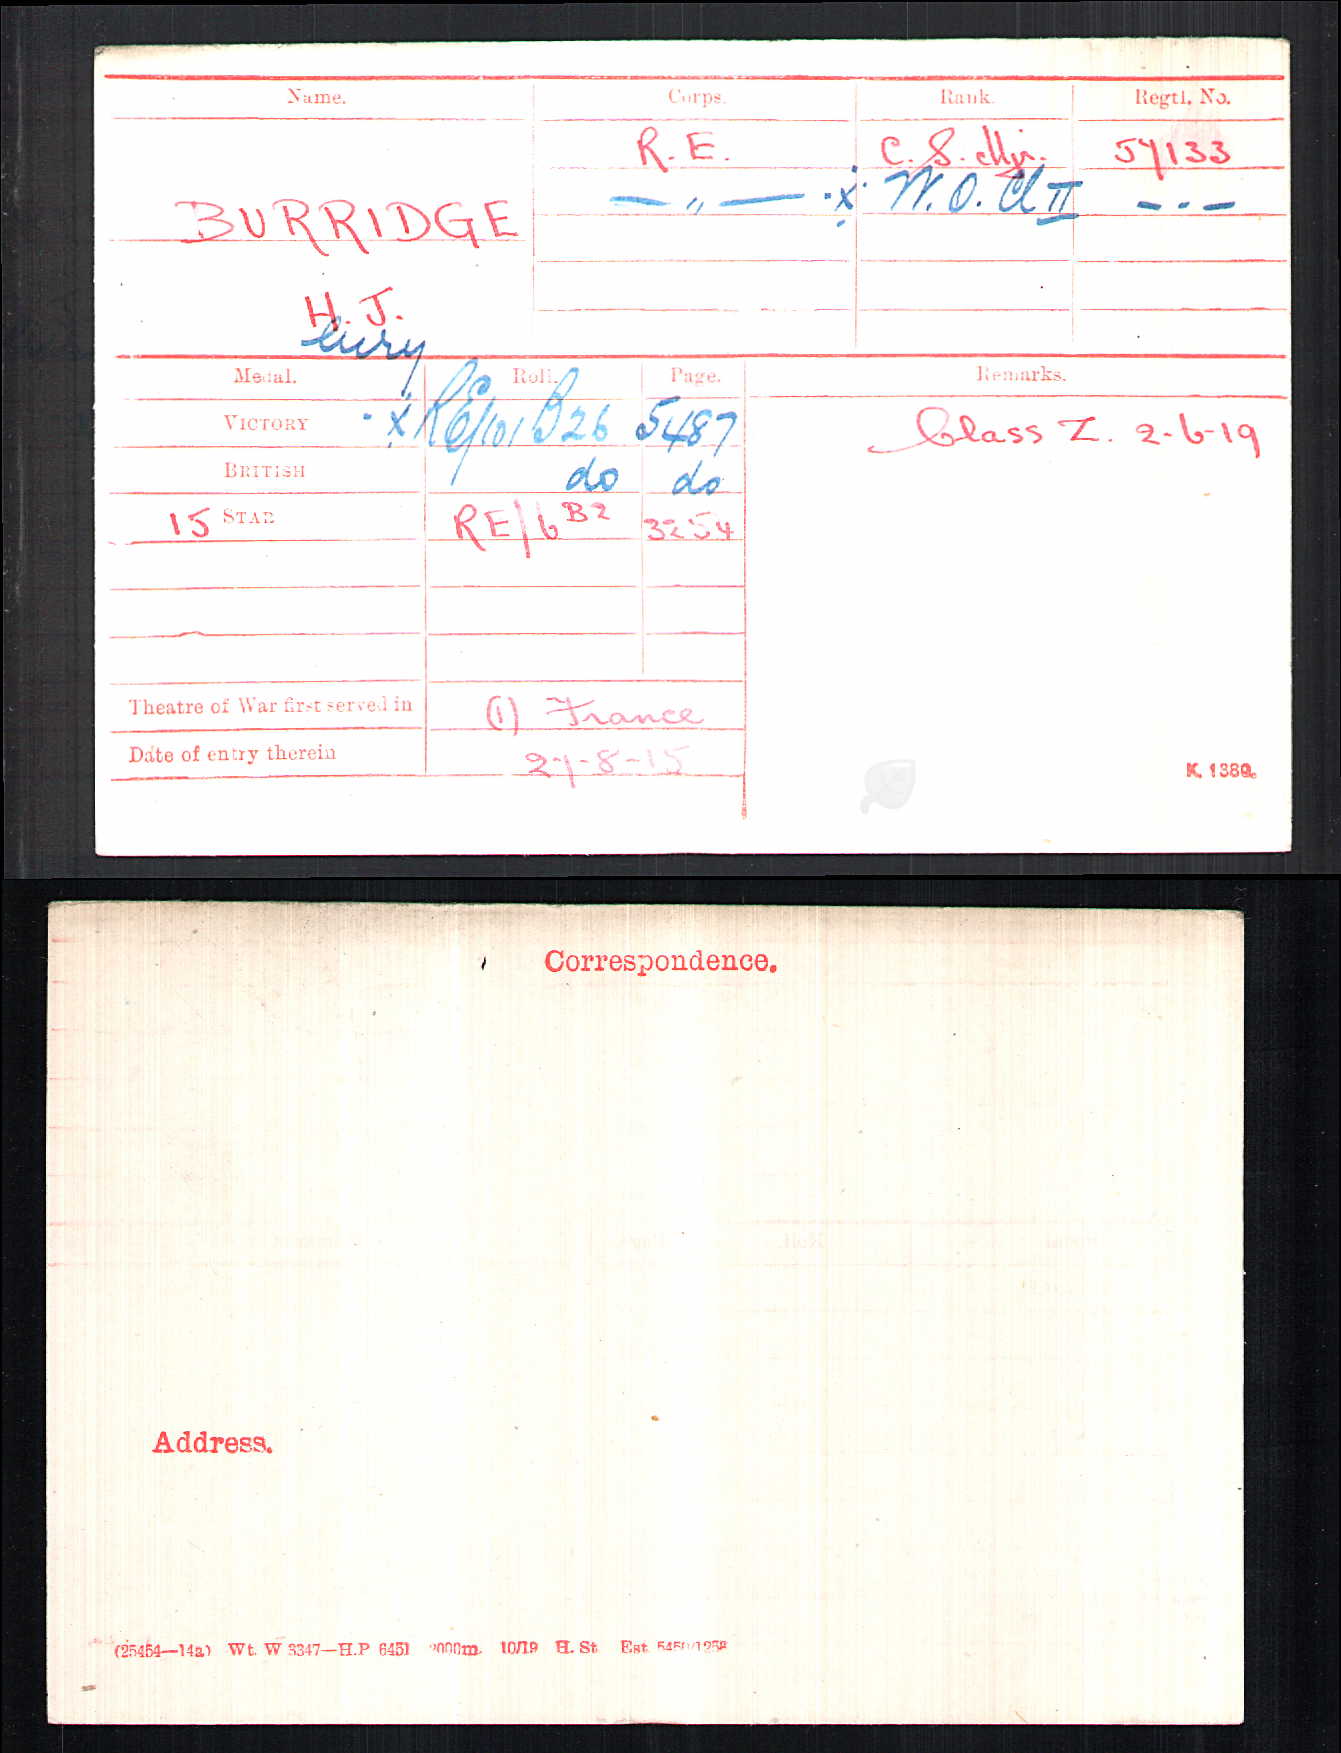 Name. Corps. Rank. Regtl. No.
R. E. C. S. Mjr. 57133
— " — ·x· W. O. Cl II - - -
BURRIDGE
H. J.
enry
Medal. Roll. Page. Remarks.
VICTORY ·x RE/101 B26 5487 Class Z. 2-6-19
BRITISH do do
15 STAR RE/6 B2 3254
Theatre of War first served in (1) France
Date of entry therein 27-8-15
K. 1380.
Correspondence.
Address.
(25454—14a) Wt. W 3347—H.P 6451 2000m. 10/19 H. St Est.